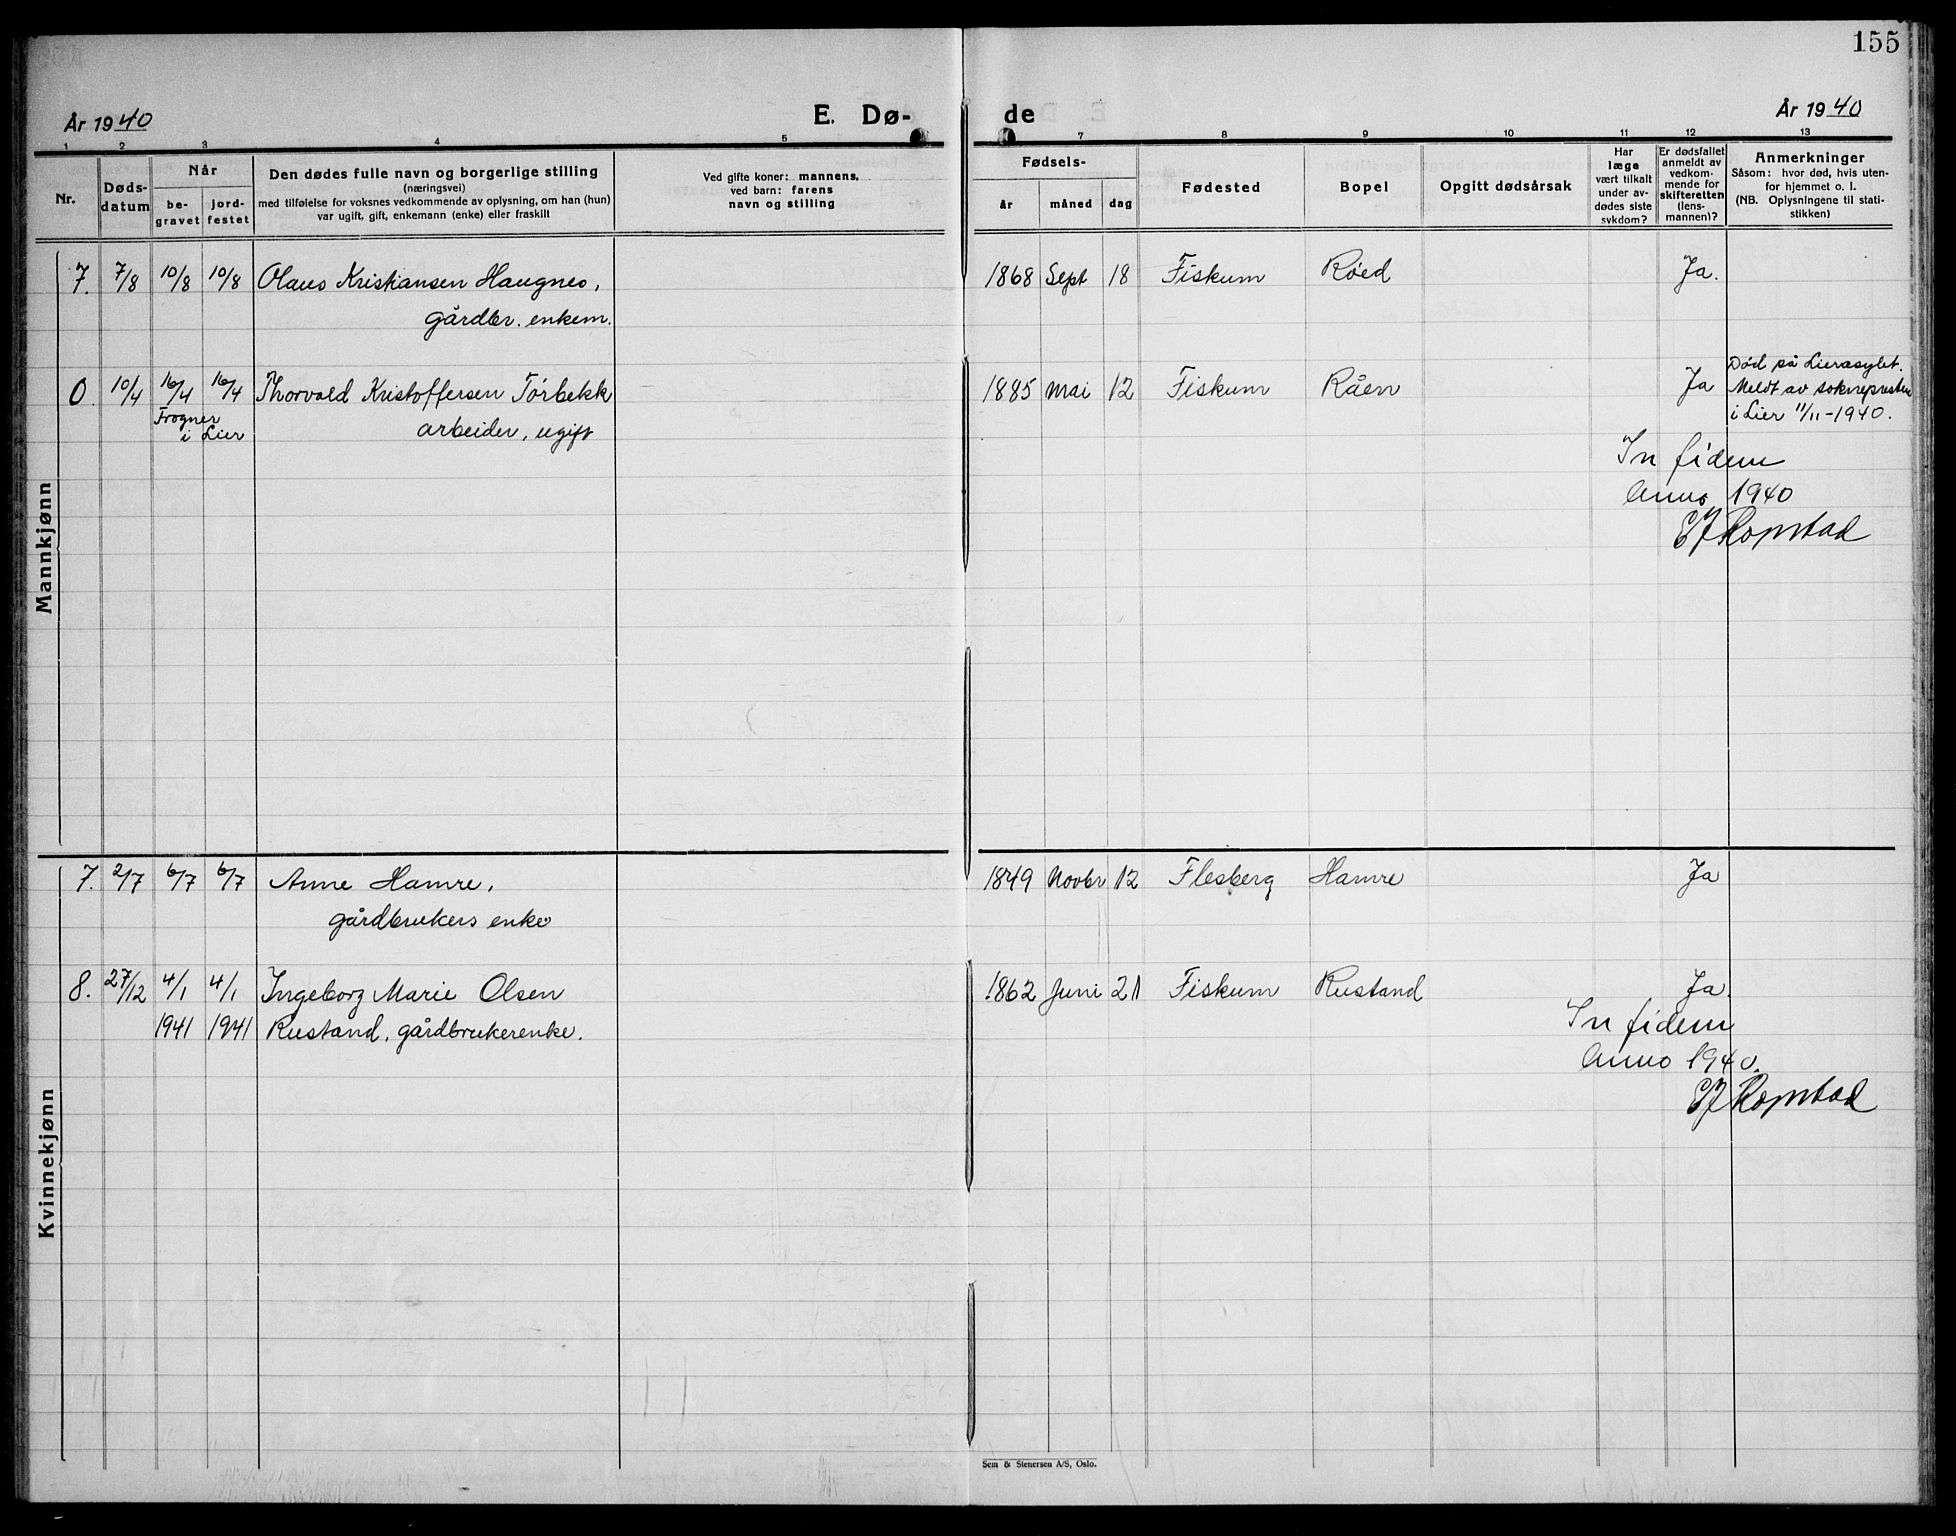 155
År 1940
E. Dø-
de
År 1940
1 2 3 4 5 7 8 9 10 11 12 13
Nr.
Døds-
datum
Når
be-
gravet
jord-
festet
Den dødes fulle navn og borgerlige stilling
(næringsvei)
med tilføielse for voksnes vedkommende av oplysning, om han (hun)
var ugift, gift, enkemann (enke) eller fraskill
Ved gifte koner: mannens,
ved barn: farens
navn og stilling
Fødsels-
år måned dag
Fødested
Bopel
Opgitt dødsårsak
Har
læge
vært tilkalt
under av-
dødes siste
sykdom?
Er dødsfallet
anmeldt av
vedkom-
mende for
skifteretten
(lens-
mannen)?
Anmerkninger
Såsom: hvor død, hvis uten-
for hjemmet o. l.
(NB. Oplysningene til stati-
stikken)
Mannkjønn
7. 7/8 10/8 10/8 Olaus Kristiansen Haugnes, 1868 Sept 18 Fiskum Røed Ja.
gårdbr. enkem.
0. 10/4 16/4 16/4 Thorvald Kristoffersen Tørbekk 1885 Mai 12 Fiskum Råen Ja
Frogner
i Lier
arbeider, ugift
Død på Lierasylet.
Meldt av soknepresten
i Lier 11/11-1940.
In fidem
Anno 1940
EJ Ropstad
Kvinnekjønn
7. 2/7 6/7 6/7 Anne Hamre, 1849 Novbr 12 Flesberg Hamre Ja
gårdbrukers enke
8. 27/12 4/1 4/1 Ingeborg Marie Olsen 1862 Juni 21 Fiskum Rustand Ja.
1941 1941 Rustand, gårdbrukerenke.
In fidem
Anno 1940.
EJ Ropstad
Sem & Stenersen A/S, Oslo.